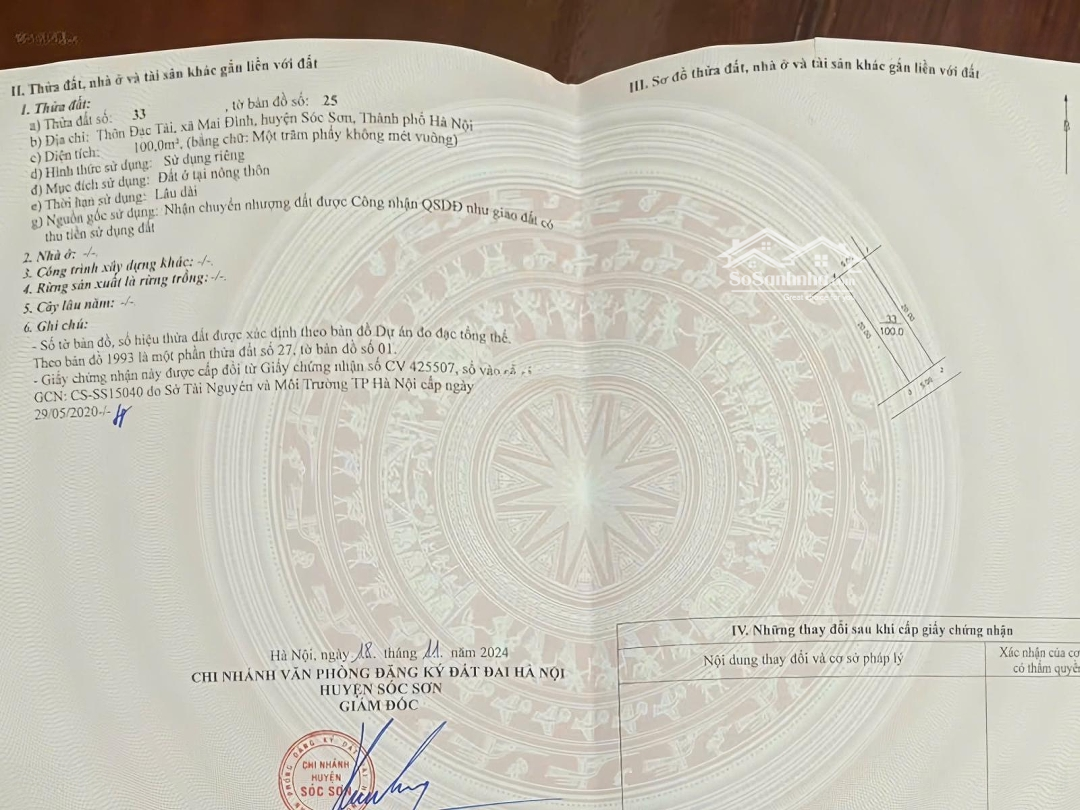 II. Thửa đất, nhà ở và tài sản khác gắn liền với đất
1. Thửa đất:
a) Thửa đất số: 33 , tờ bản đồ số: 25
b) Địa chỉ: Thôn Đạc Tài, xã Mai Đình, huyện Sóc Sơn, Thành phố Hà Nội
c) Diện tích: 100,0m², (bằng chữ: Một trăm phẩy không mét vuông)
d) Hình thức sử dụng: Sử dụng riêng
đ) Mục đích sử dụng: Đất ở tại nông thôn
e) Thời hạn sử dụng: Lâu dài
g) Nguồn gốc sử dụng: Nhận chuyển nhượng đất được Công nhận QSDĐ như giao đất có
thu tiền sử dụng đất
2. Nhà ở: -/-.
3. Công trình xây dựng khác: -/-.
4. Rừng sản xuất là rừng trồng: -/-.
5. Cây lâu năm: -/-.
6. Ghi chú:
- Số tờ bản đồ, số hiệu thửa đất được xác định theo bản đồ Dự án đo đạc tổng thể.
Theo bản đồ 1993 là một phần thửa đất số 27, tờ bản đồ số 01.
- Giấy chứng nhận này được cấp đổi từ Giấy chứng nhận số CV 425507, số vào
GCN: CS-SS15040 do Sở Tài Nguyên và Môi Trường TP Hà Nội cấp ngày
29/05/2020-/-
Hà Nội, ngày 18. tháng 11. năm 2024
CHI NHÁNH VĂN PHÒNG ĐĂNG KÝ ĐẤT ĐAI HÀ NỘI
HUYỆN SÓC SƠN
GIÁM ĐỐC
CHI NHÁNH
HUYỆN
SÓC SƠN
III. Sơ đồ thửa đất, nhà ở và tài sản khác gắn liền với đất
SoSanhnha
5.00
1
4
20.00
33
100.0
20.00
3
5.00
2
IV. Những thay đổi sau khi cấp giấy chứng nhận
Nội dung thay đổi và cơ sở pháp lý
Xác nhận của cơ
có thẩm quyề